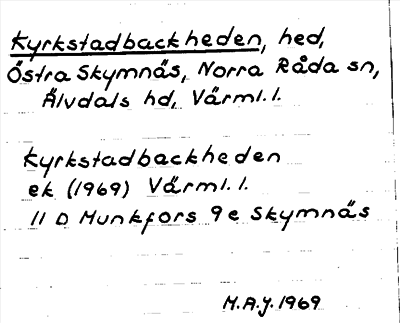 Kyrkstadbackheden, hed,
Östra Skymnäs, Norra Råda sn,
Älvdals hd, Värml. l.
Kyrkstadbackheden
ek (1969) Värml. l.
11 D Munkfors 9 e Skymnäs
M.A.J. 1969